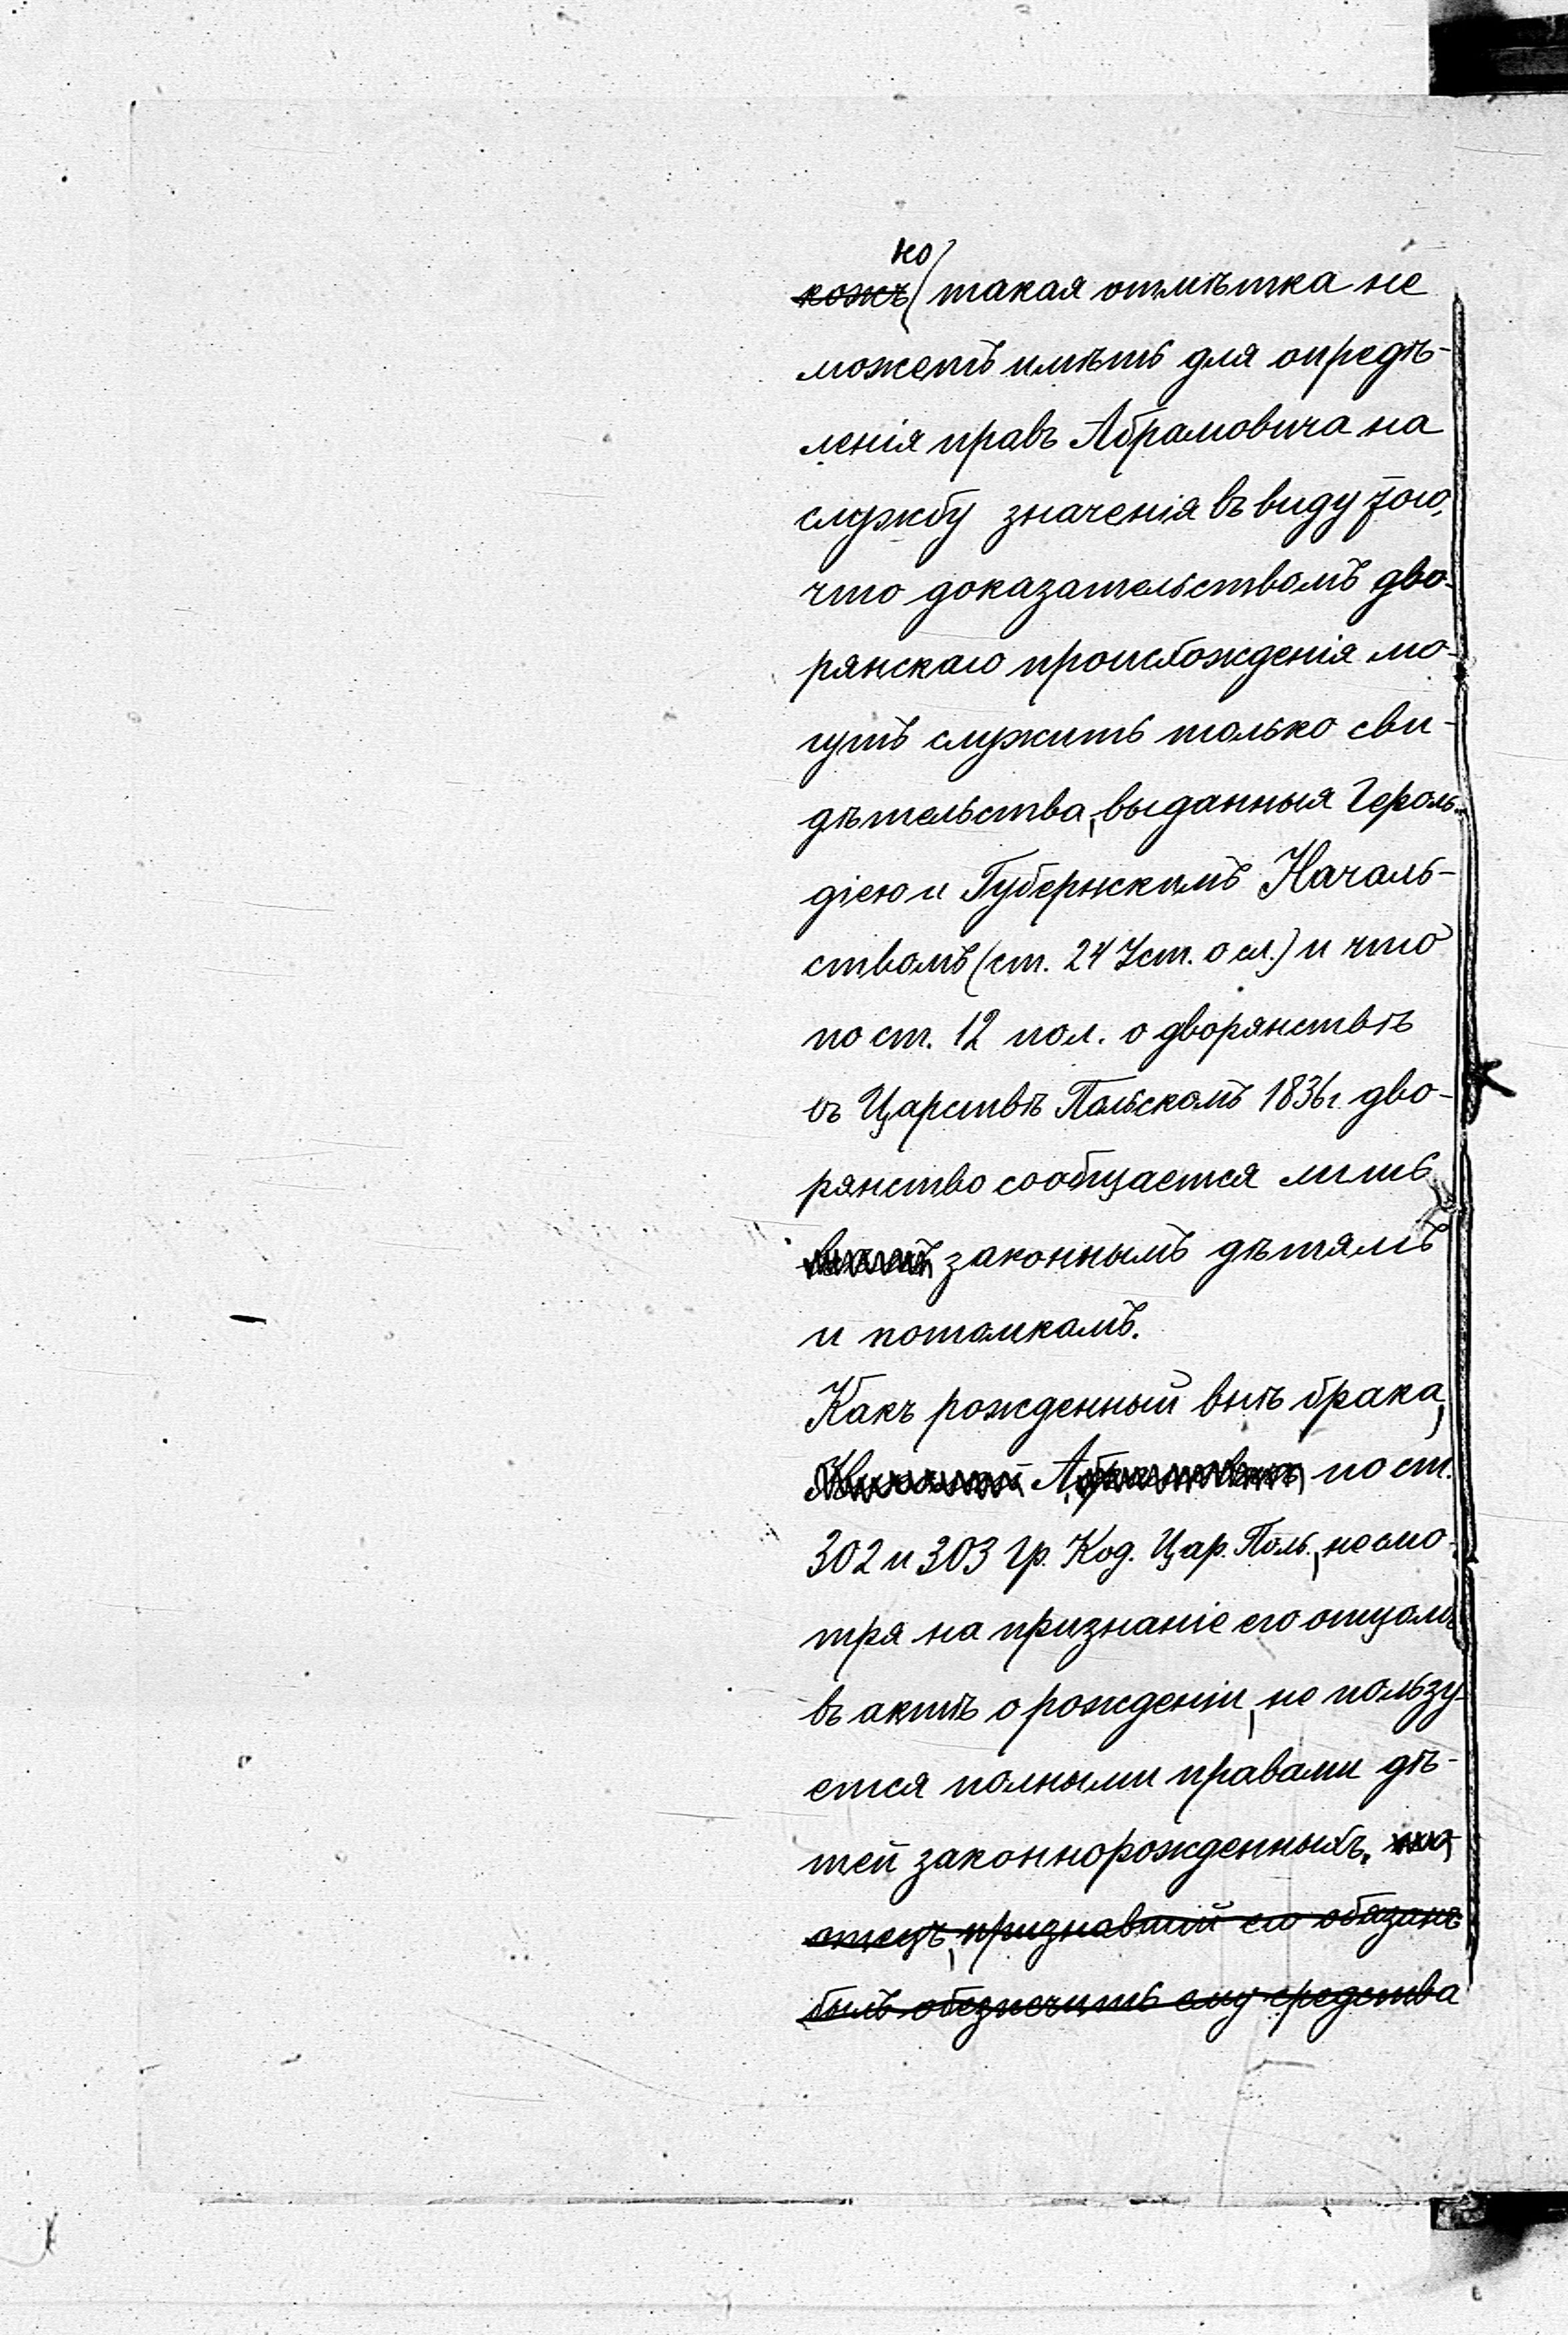 но
кожъ такая отмѣтка не
можетъ имѣть для опредѣ-
ленія правъ Абрамовича на
службу значенія въ виду того,
что доказательствомъ дво-
рянскаго происхожденія мо-
гутъ служить только сви-
дѣтельства, выданныя Героль-
діею и Губернскимъ Началь-
ствомъ (ст. 24 Уст. о сл.) и что
по ст. 12 пол. о дворянствѣ
въ Царствѣ Польскомъ 1836 г. дво-
рянство сообщается лишь
законнымъ дѣтямъ
и потомкамъ.
Какъ рожденный внѣ брака,
по ст.
302 и 303 Гр. Код. Цар. Поль., несмо-
тря на признаніе его отцомъ
въ актѣ о рожденіи, не пользу-
ется полными правами дѣ-
тей законнорожденныхъ.
отецъ, признавшій его обязанъ
былъ обезпечить ему средства